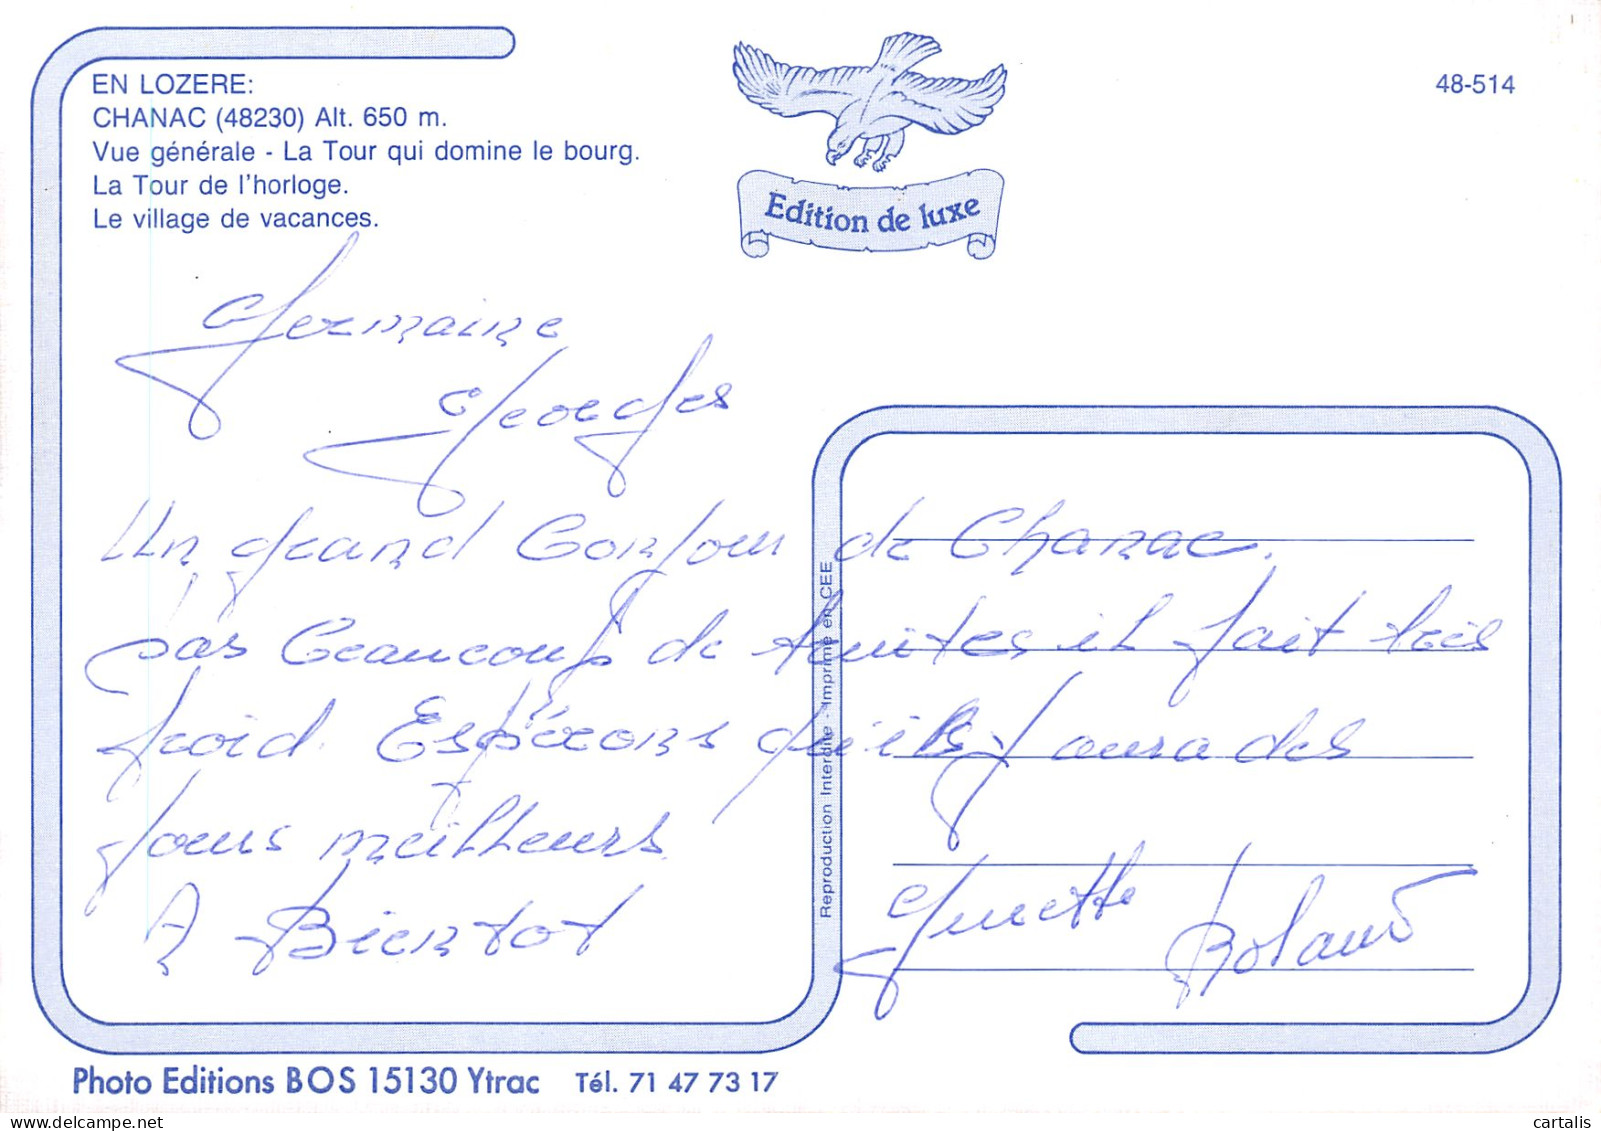 EN LOZERE:
CHANAC (48230) Alt. 650 m.
Vue générale - La Tour qui domine le bourg.
La Tour de l'horloge.
Le village de vacances.
Edition de luxe
48-514
Germaine
Georges
Un grand Bonjour de Chanac.
pas Beaucoup de truites il fait très
froid. Espérons qu'ils y aura des
jours meilleurs
A Bientot
Ginette Roland
Reproduction Interdite - Imprimé en CEE
Photo Editions BOS 15130 Ytrac Tél. 71 47 73 17
delcampe.net
cartalis